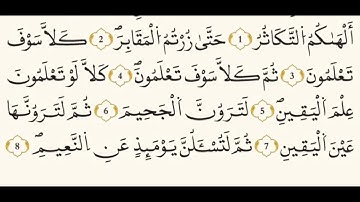 أَلْهَاكُمُ التَّكَاثُرُ 1 حَتَّى زُرْتُمُ الْمَقَابِرَ 2 كَلَّا سَوْفَ
تَعْلَمُونَ 3 ثُمَّ كَلَّا سَوْفَ تَعْلَمُونَ 4 كَلَّا لَوْ تَعْلَمُونَ
عِلْمَ الْيَقِينِ 5 لَتَرَوُنَّ الْجَحِيمَ 6 ثُمَّ لَتَرَوُنَّهَا
عَيْنَ الْيَقِينِ 7 ثُمَّ لَتُسْـَٔلُنَّ يَوْمَئِذٍ عَنِ النَّعِيمِ 8